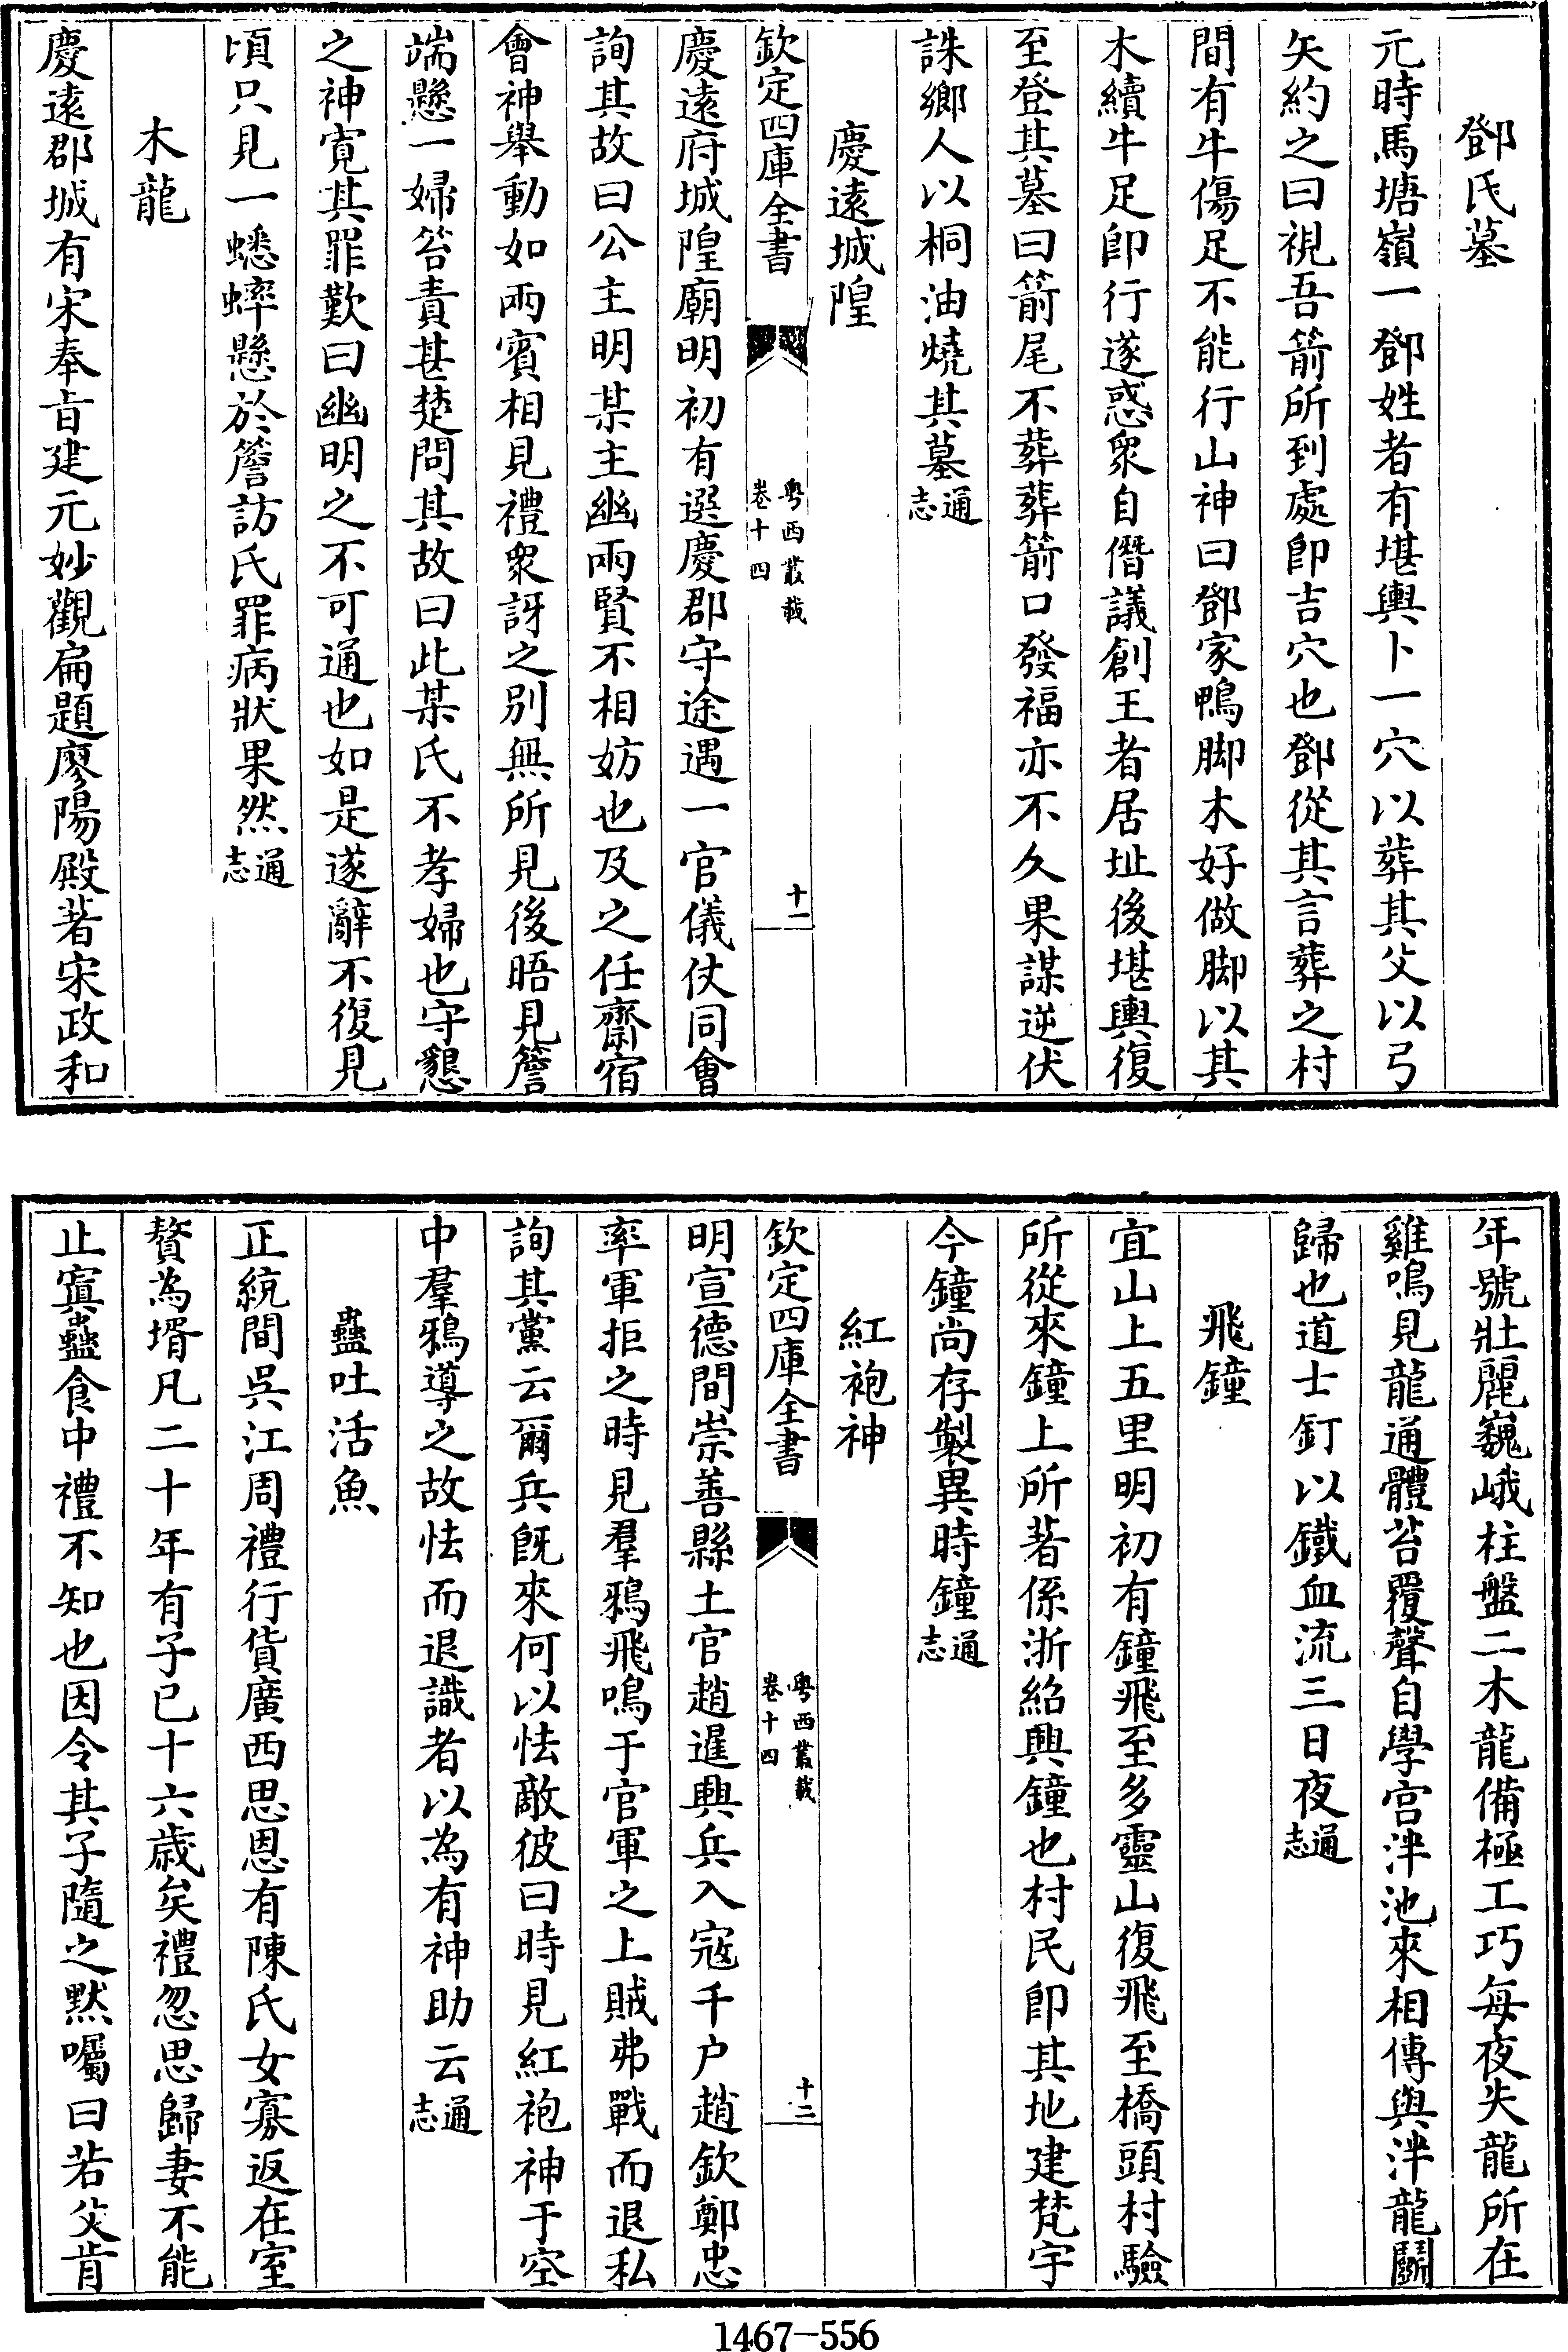 鄧氏墓
元時馬塘嶺一鄧姓者有堪輿卜一穴以葬其父以弓
矢約之曰視吾箭所到處卽吉穴也鄧從其言葬之村
間有牛傷足不能行山神曰鄧家鴨脚木好做脚以其
木續牛足卽行遂惑衆自僭議創王者居址後堪輿復
至登其墓曰箭尾不葬葬箭口發福亦不久果謀逆伏
誅鄉人以桐油燒其墓通志
慶遠城隍
欽定四庫全書
粵西叢載
卷十四
十一
慶遠府城隍廟明初有選慶郡守途遇一官儀仗同會
詢其故曰公主明某主幽兩賢不相妨也及之任齋宿
會神舉動如兩賓相見禮衆訝之别無所見後晤見簷
端懸一婦笞責甚楚問其故曰此某氏不孝婦也守懇
之神寛其罪歎曰幽明之不可通也如是遂辭不復見
頃只見一蟋蟀懸於簷訪氏罪病狀果然通志
木龍
慶遠郡城有宋奉旨建元妙觀扁題廖陽殿著宋政和
年號壯麗巍峨柱盤二木龍備極工巧每夜失龍所在
雞鳴見龍通體苔覆聲自學宫泮池來相傳與泮龍鬭
歸也道士釘以鐵血流三日夜通志
飛鐘
宜山上五里明初有鐘飛至多靈山復飛至橋頭村驗
所從來鐘上所著係浙紹興鐘也村民卽其地建梵宇
今鐘尚存製異時鐘通志
紅袍神
欽定四庫全書
粵西叢載
卷十四
十二
明宣德間崇善縣土官趙暹興兵入寇千户趙欽鄭忠
率軍拒之時見羣鴉飛鳴于官軍之上賊弗戰而退私
詢其黨云爾兵旣來何以怯敵彼曰時見紅袍神于空
中羣鴉導之故怯而退識者以為有神助云通志
蠱吐活魚
正統間吳江周禮行貨廣西思恩有陳氏女寡返在室
贅為壻凡二十年有子已十六歳矣禮忽思歸妻不能
止寘蠱食中禮不知也因令其子隨之黙囑曰若父肯
1467-556